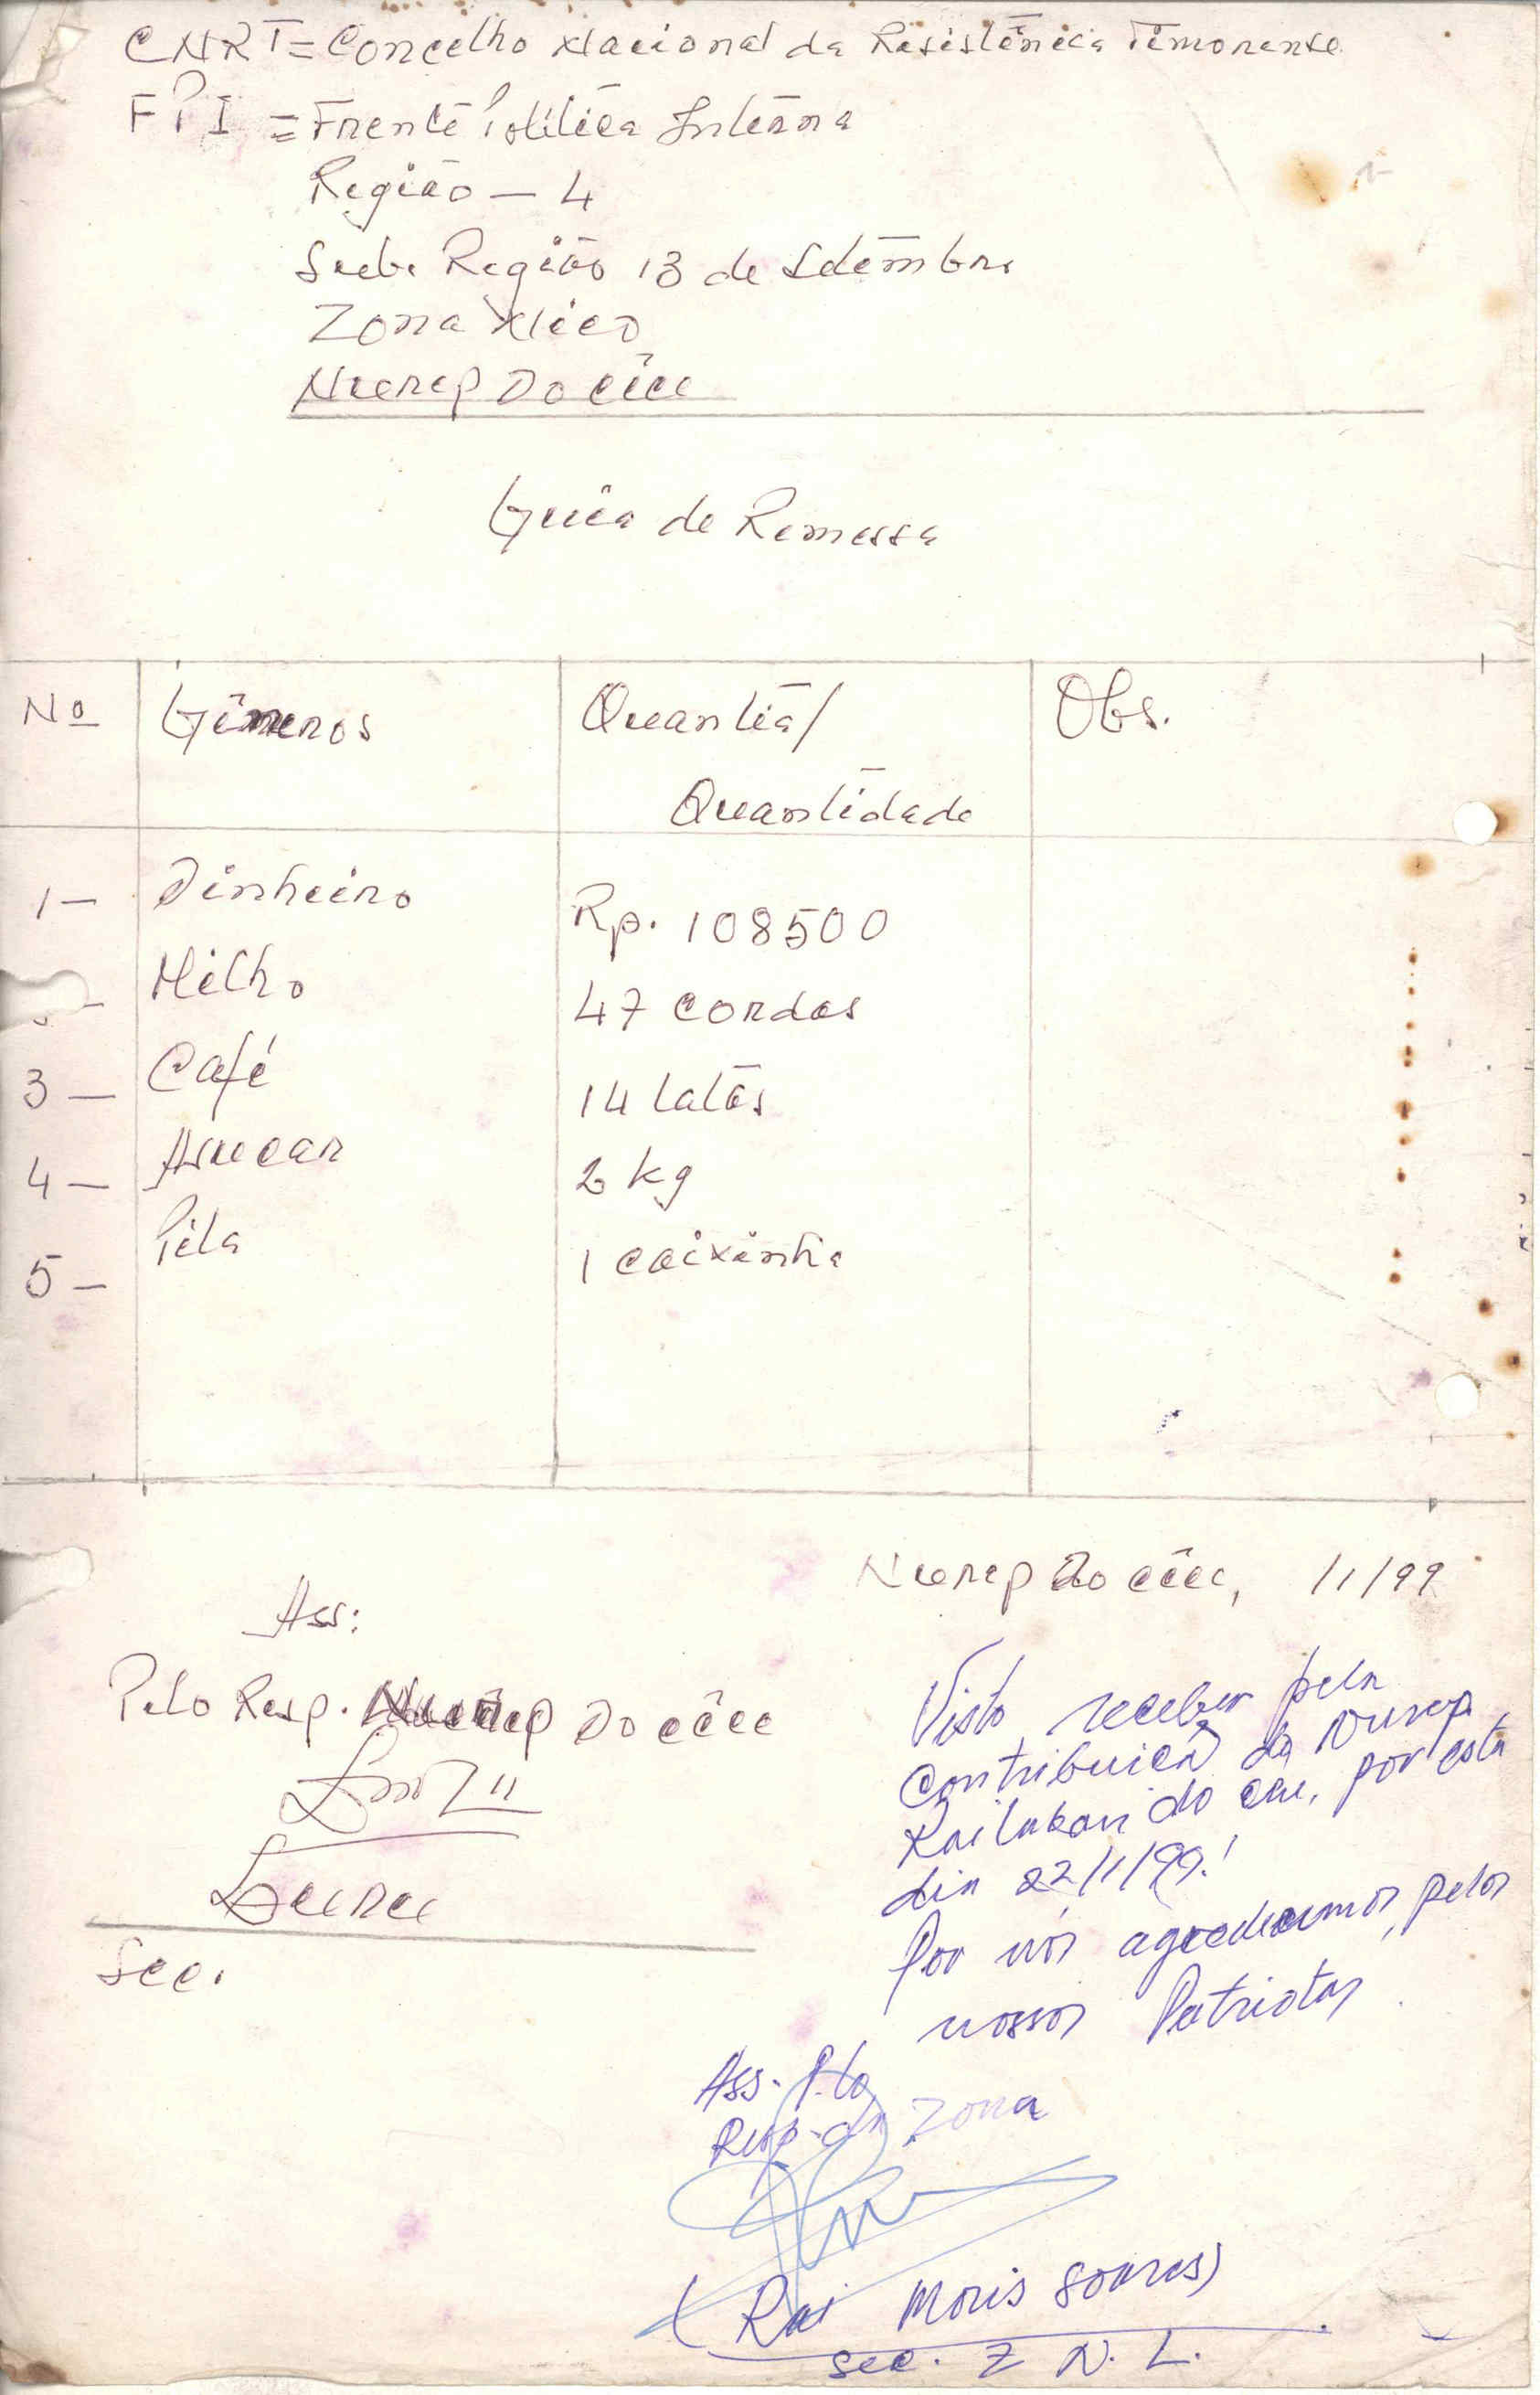 CNRT = Concelho Nacional da Resistência Timorense
FPI = Frente Politica Interna
Região - 4
Sub. Região 13 de Setembro
Zona Nico
Nurep Do
Guia de Remessa
Nº Gêneros Quantia/ Obs.
Quantidade
1 - Dinheiro Rp. 108500
- Milho 47 cordas
3 - Café 14 latas
4 - Asucar 2 kg
5 - Pila 1 caixinha
Nurep Do 1/1/99
Ass:
Pelo Resp. Nurep Do
Sec.
Visto receber pela
contribuica da Nurep
Railakan do por esta
dia 22/1/99!
Por nós agradecemos, pelos
nossos Patriotas.
Ass. Plo
Resp. da Zona
(Rai Moris Soares)
Sec. Z N. L.